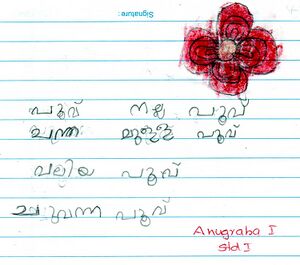 Signature :
പൂവ് നല്ല പൂവ്
മുള്ള് പൂവ്
വലിയ പൂവ്
ചുവന്ന പൂവ്
Anugraha I
std I